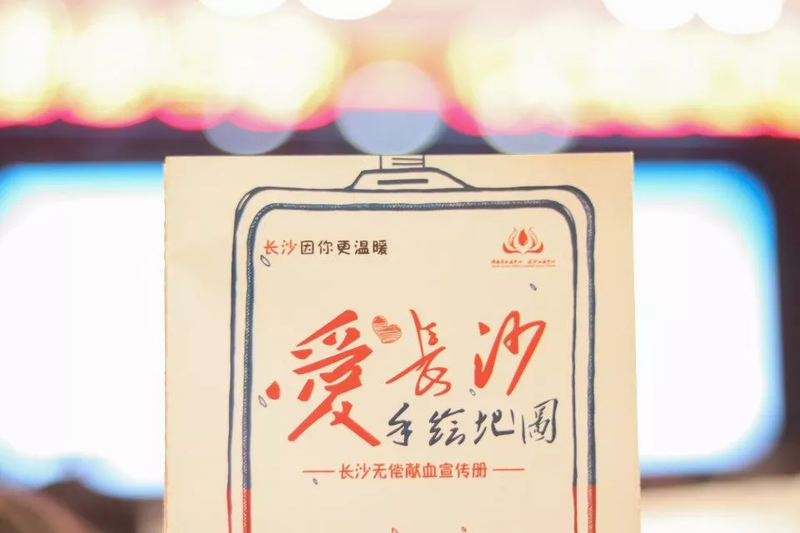 长沙因你更温暖
愛長沙
手绘地圖
长沙无偿献血宣传册